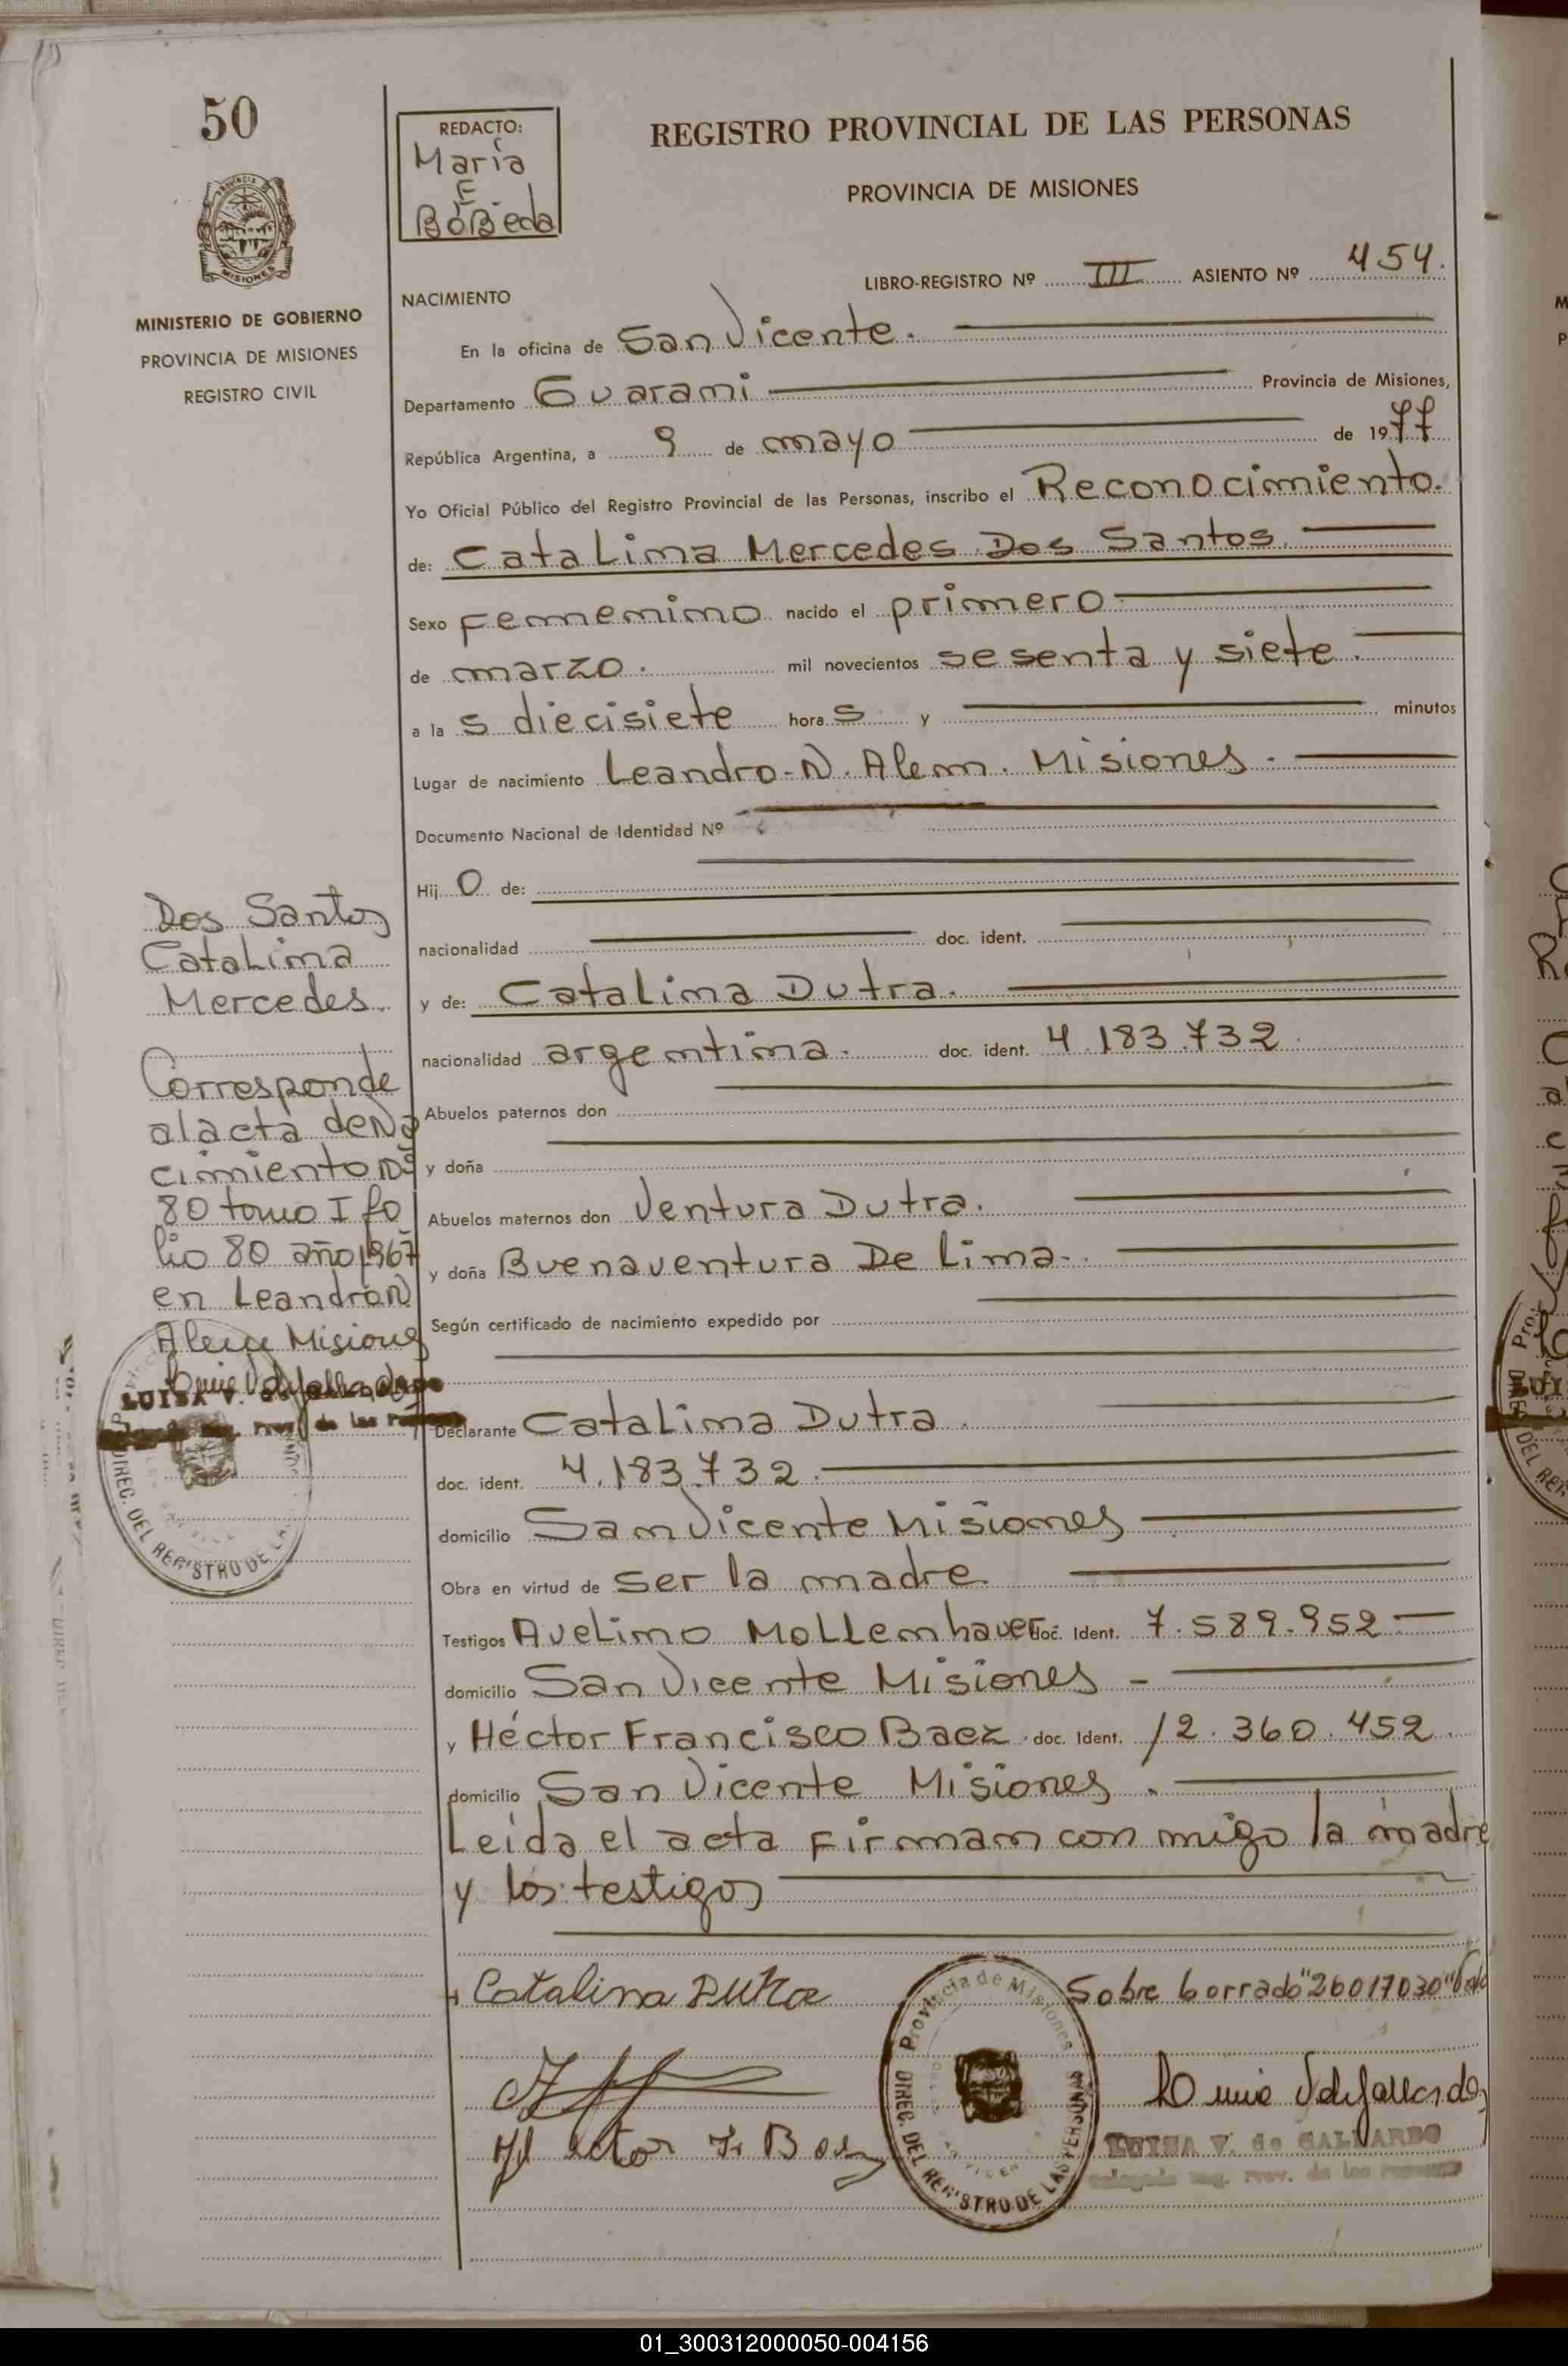 50
REDACTO:
María
E
BoBeda
REGISTRO PROVINCIAL DE LAS PERSONAS
PROVINCIA DE MISIONES
MISIONES
MINISTERIO DE GOBIERNO
PROVINCIA DE MISIONES
REGISTRO CIVIL
LIBRO-REGISTRO Nº III ASIENTO Nº 454.
NACIMIENTO
En la oficina de San Vicente.
Departamento Guarami Provincia de Misiones,
República Argentina, a 9 de mayo de 1977
Yo Oficial Público del Registro Provincial de las Personas, inscribo el Reconocimiento.
de: Catalima Mercedes Dos Santos.
Sexo Femenimo nacido el primero
de marzo. mil novecientos sesenta y siete.
a la s diecisiete hora s y minutos
Lugar de nacimiento Leandro-N. Alem. Misiones.
Documento Nacional de Identidad Nº
Hij o de:
nacionalidad doc. ident.
y de: Catalima Dutra.
nacionalidad argemtima. doc. ident. 4.183.732
Abuelos paternos don
y doña
Abuelos maternos don Ventura Dutra.
y doña Buenaventura De Lima.
Según certificado de nacimiento expedido por
Declarante Catalima Dutra.
doc. ident. 4.183.732.
domicilio Sam Vicente Misiomes
Obra en virtud de ser la madre.
Testigos Avelimo Mollemhaver doc. Ident. 7.589.952
domicilio San Vicente Misiones
y Héctor Francisco Baez. doc. Ident. 12.360.452.
domicilio San Vicente Misiones.
Leída el acta firmam con migo la madre
y los testigos
Dos Santos
Catalima
Mercedes.
Corresponde
al acta de Na
cimiento Nº
80 tomo I fo
lio 80 año 1967
en Leandro N
Alem Misiones
LUISA V. de GALLARDO
DIREC. DEL REGISTRO DE LAS
Catalina Dutra
Sobre borrado "26017030" Vale
Héctor F. Baez
Provincia de Misiones
DIREC. DEL REGISTRO DE LAS PERSONAS
LUISA V. de GALLARDO
01_300312000050-004156